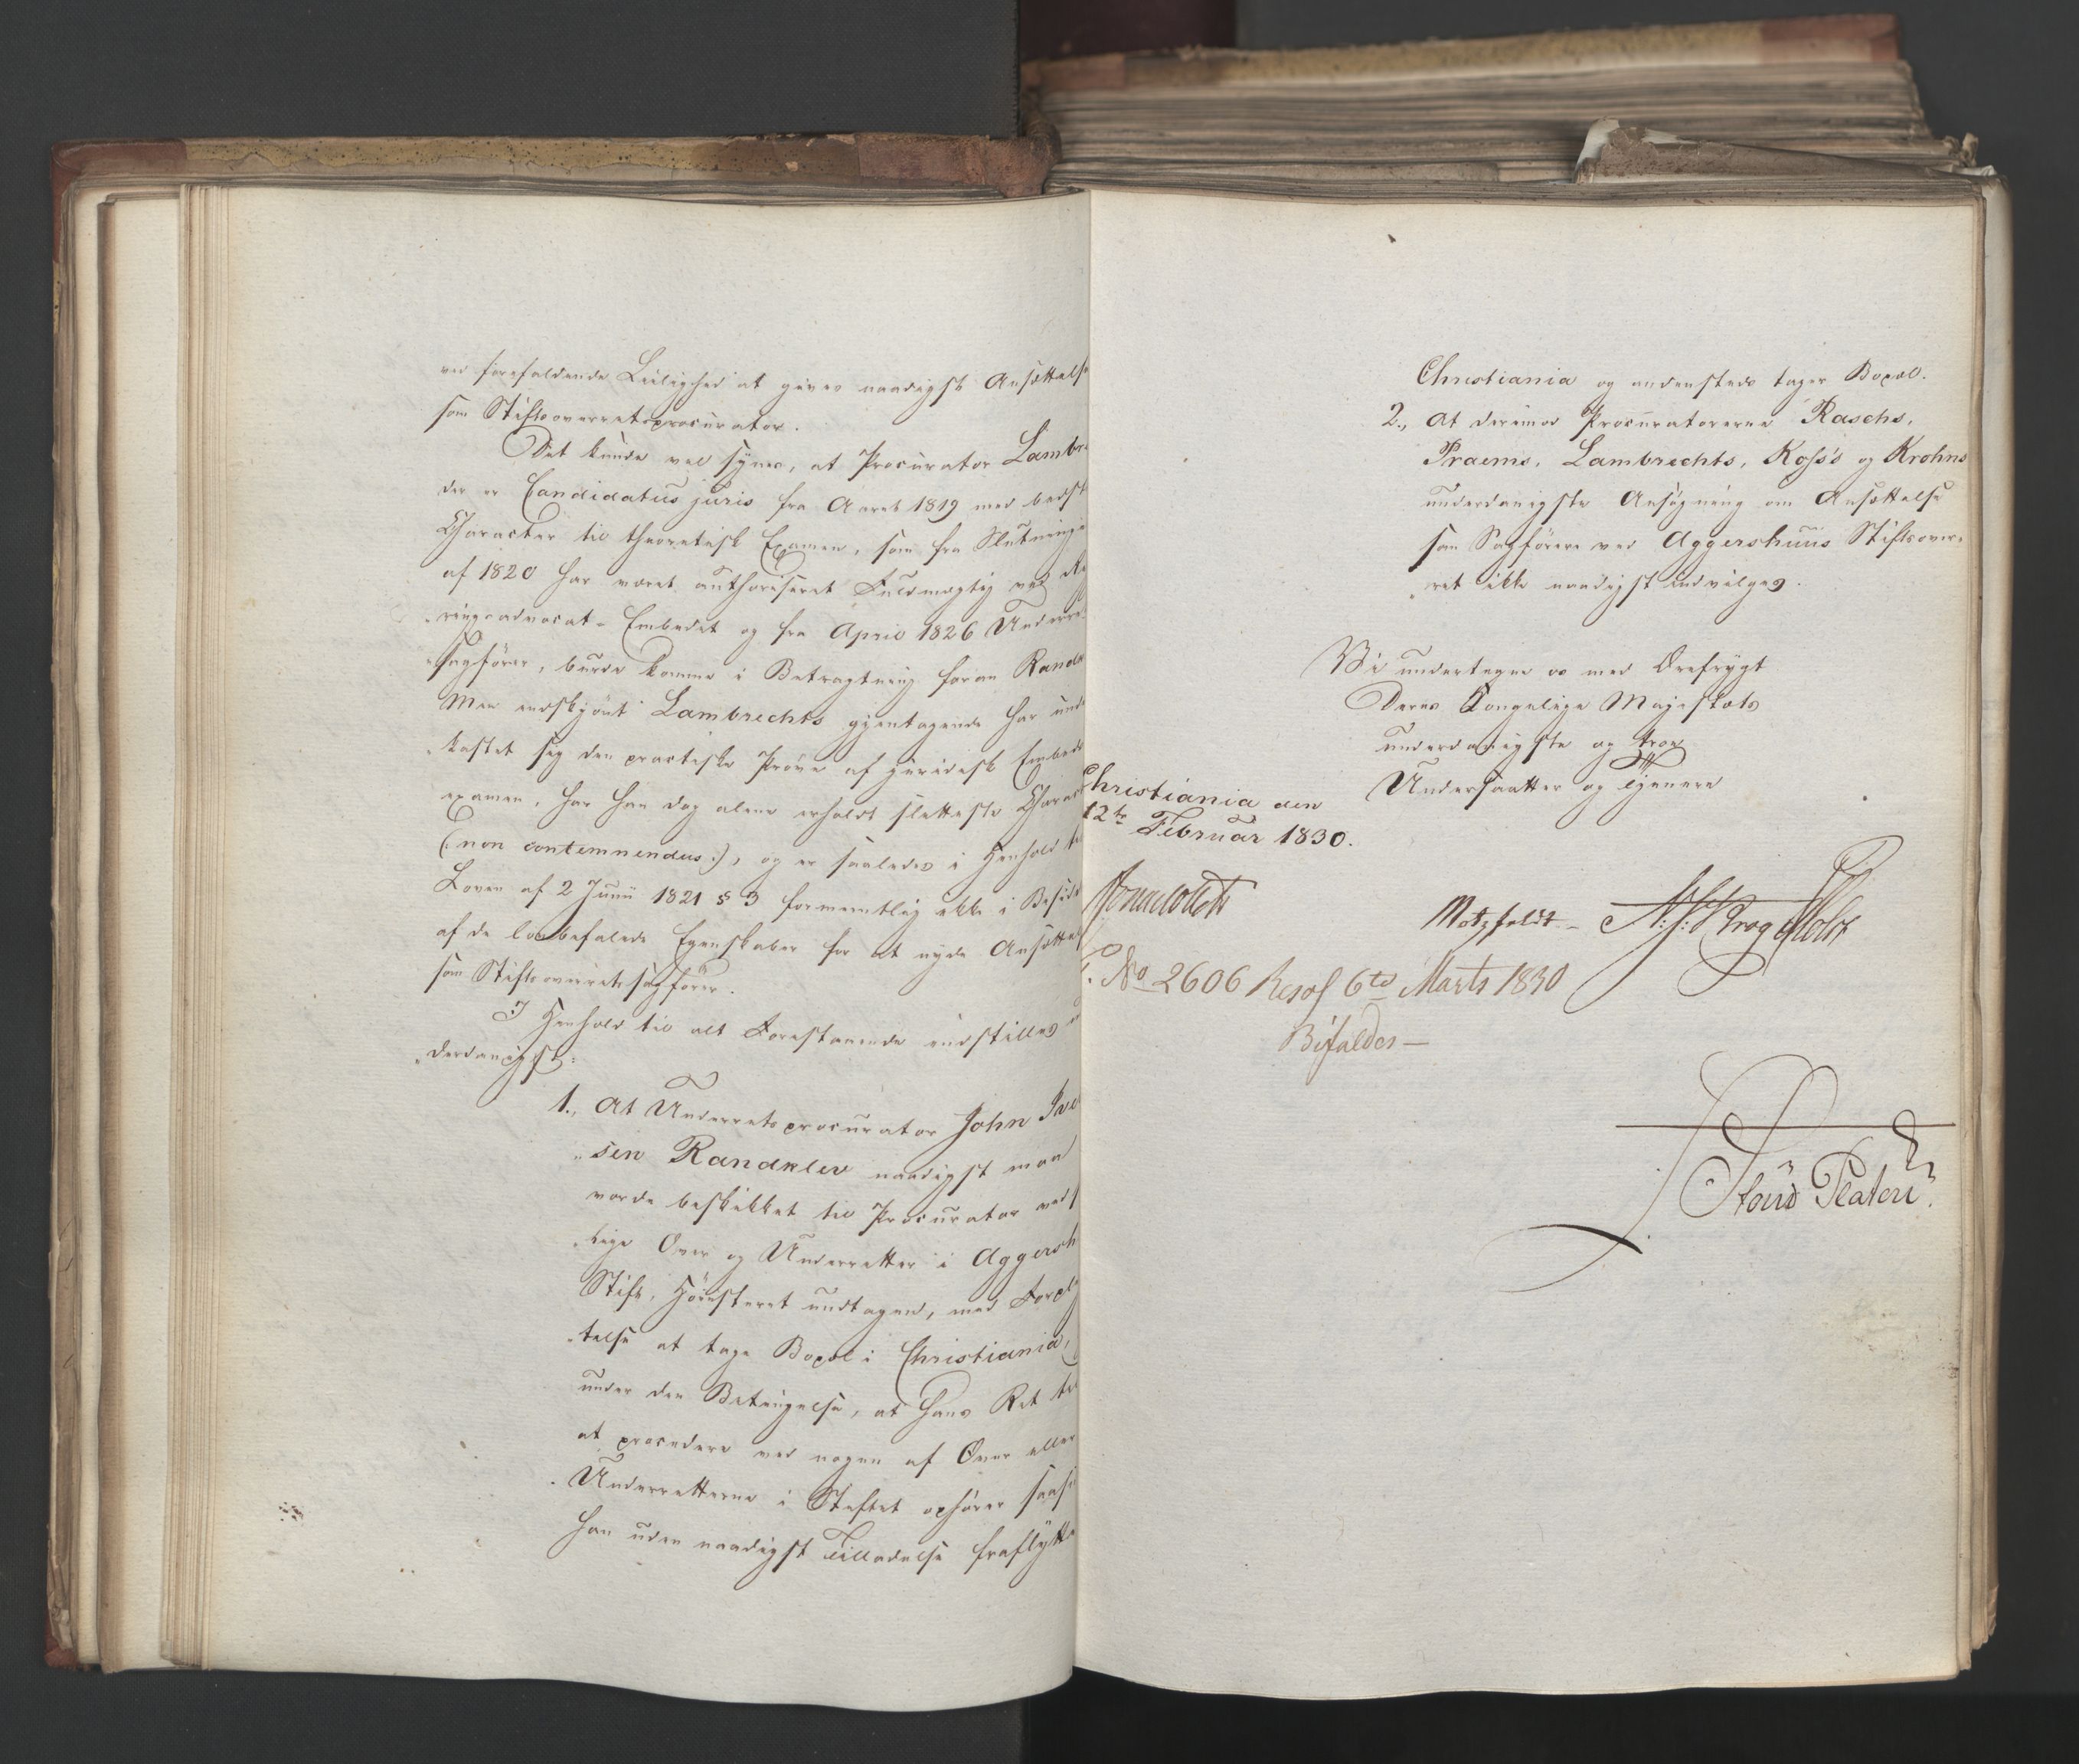 ved forefaldende Leilighed at gives naadigst Ansættelse
som Stiftsoverretsprocurator.
Det kunde vel synes, at Procurator Lambre
der er Candidatus juris fra Aaret 1819 med bedste
Character til theoretisk Examen, som fra Slutninge
af 1820 har været authoriseret Fuldmægtig ved Re
"ringsadvocat-Embedet og fra April 1826 Underre
"sagfører, burde komme i Betragtning foran Randk
Men endskjönt Lambrechts gjentagende har und
"kastet sig den practiske Prøve af juridisk Embeds
examen, har han dog alene erholdt sletteste Charac
(: non contemnendus :), og er saaledes i Henhold til
Loven af 2 Junii 1821 § 3 formeentlig ikke i Besidd
af de lovbefalede Egenskaber for at nyde Ansættel
som Stiftsoverretssagfører.
I Henhold til alt Forestaaende indstilles un
"derdanigst:
1., At Underretsprocurator John Ive
"sen Randklev naadigst maa
vorde beskikket til Procurator ved
"lige Over og Underretter i Aggersh
Stift, Höiesteret undtagen, med Forpl
"telse at tage Bopæl i Christiania,
under den Betingelse, at hans Ret til
at procedere ved nogen af Over eller
Underretterne i Stiftet ophører saas
han uden naadigst Tilladelse fraflytter
Christiania og andensteds tager Bopæl.
2., At derimod Procuratorerne Raschs,
Praems, Lambrechts, Koss's og Krohns
underdanigste Ansøgning om Ansættelse
som Sagførere ved Aggershuus Stiftsover"
"ret ikke naadigst indvilges.
Vi undertegne os med Ærefrygt
Deres Kongelige Majestæts
underdanigste og troe
Undersaatter og Tjenere
Christiania den
12te Februar 1830.
Motzfeldt N: J: Krog Holst
No 2606 Resol 6te Marts 1830
Bifaldes—
Platen